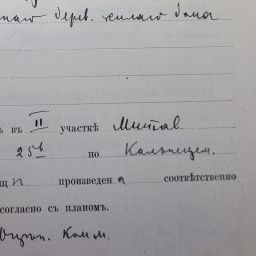 наго дерев. жилаго дома
ь въ II участкѣ Митав.
25ъ по Кальнецем.
щ п произведен а соотвѣтственно
согласно съ планомъ.
Комм.